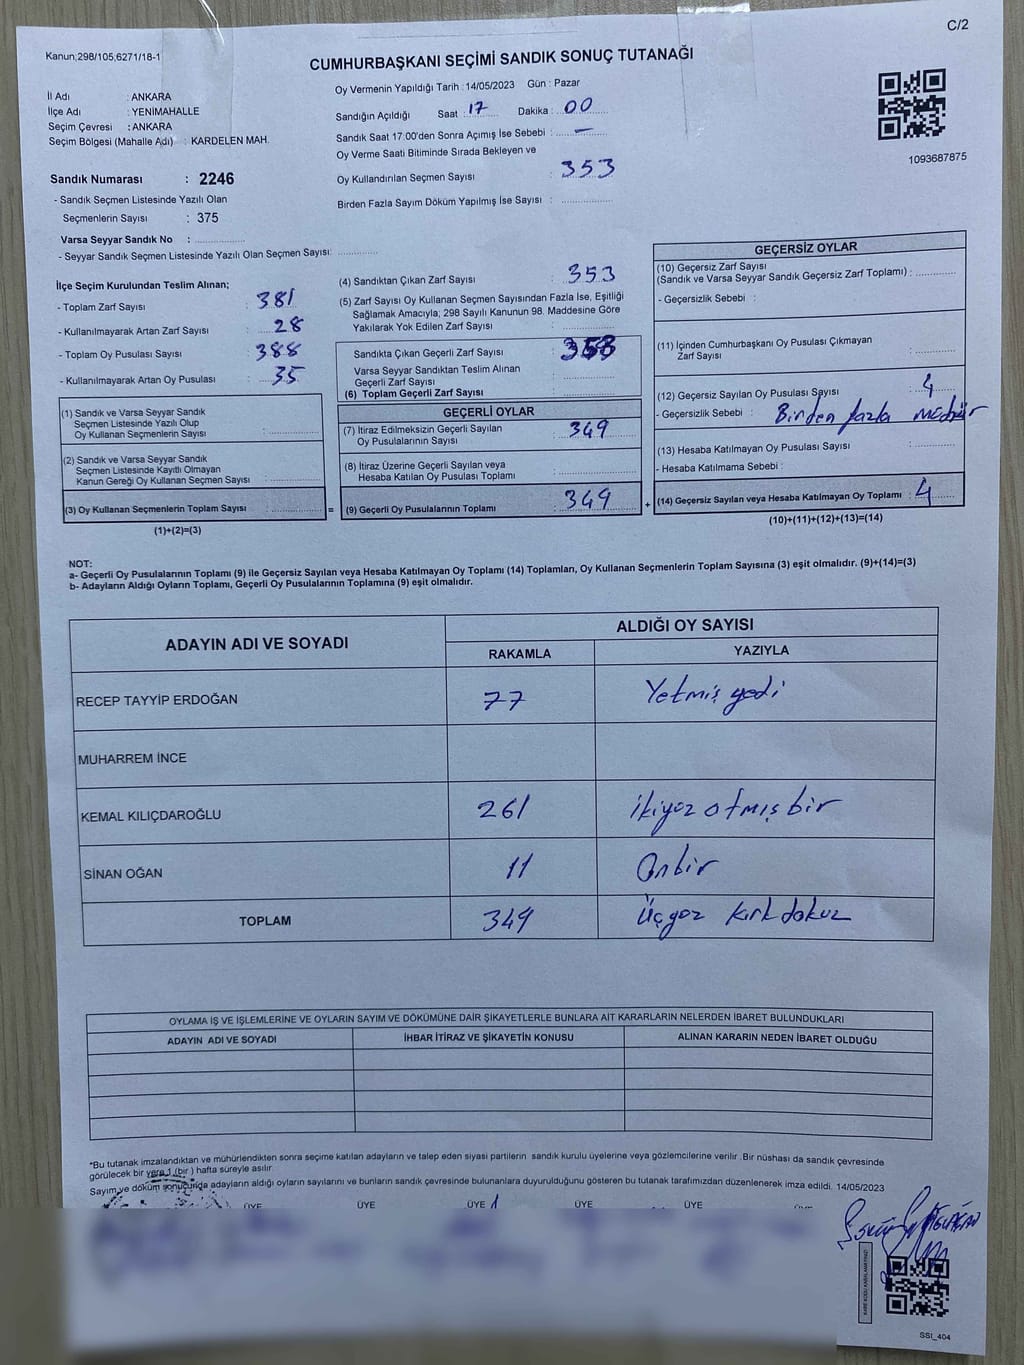 C/2
Kanun;298/105,6271/18-1
CUMHURBAŞKANI SEÇİMİ SANDIK SONUÇ TUTANAĞI
İl Adı : ANKARA
İlçe Adı : YENİMAHALLE
Seçim Çevresi : ANKARA
Seçim Bölgesi (Mahalle Adı) : KARDELEN MAH.
Oy Vermenin Yapıldığı Tarih : 14/05/2023 Gün : Pazar
Sandığın Açıldığı Saat : 17 Dakika : 00
Sandık Saat 17:00'den Sonra Açımış İse Sebebi : —
Oy Verme Saati Bitiminde Sırada Bekleyen ve
Oy Kullandırılan Seçmen Sayısı : 353
Birden Fazla Sayım Döküm Yapılmış İse Sayısı :
1093687875
Sandık Numarası : 2246
- Sandık Seçmen Listesinde Yazılı Olan
Seçmenlerin Sayısı : 375
Varsa Seyyar Sandık No :
- Seyyar Sandık Seçmen Listesinde Yazılı Olan Seçmen Sayısı:
İlçe Seçim Kurulundan Teslim Alınan;
- Toplam Zarf Sayısı : 381
- Kullanılmayarak Artan Zarf Sayısı : 28
- Toplam Oy Pusulası Sayısı : 388
- Kullanılmayarak Artan Oy Pusulası : 35
(1) Sandık ve Varsa Seyyar Sandık
Seçmen Listesinde Yazılı Olup
Oy Kullanan Seçmenlerin Sayısı :
(2) Sandık ve Varsa Seyyar Sandık
Seçmen Listesinde Kayıtlı Olmayan
Kanun Gereği Oy Kullanan Seçmen Sayısı :
(3) Oy Kullanan Seçmenlerin Toplam Sayısı :
=
(1)+(2)=(3)
(4) Sandıktan Çıkan Zarf Sayısı : 353
(5) Zarf Sayısı Oy Kullanan Seçmen Sayısından Fazla İse, Eşitliği
Sağlamak Amacıyla; 298 Sayılı Kanunun 98. Maddesine Göre
Yakılarak Yok Edilen Zarf Sayısı :
Sandıkta Çıkan Geçerli Zarf Sayısı : 353
Varsa Seyyar Sandıktan Teslim Alınan
Geçerli Zarf Sayısı :
(6) Toplam Geçerli Zarf Sayısı :
GEÇERLİ OYLAR
(7) İtiraz Edilmeksizin Geçerli Sayılan
Oy Pusulalarının Sayısı : 349
(8) İtiraz Üzerine Geçerli Sayılan veya
Hesaba Katılan Oy Pusulası Toplamı :
(9) Geçerli Oy Pusulalarının Toplamı : 349
+
GEÇERSİZ OYLAR
(10) Geçersiz Zarf Sayısı
(Sandık ve Varsa Seyyar Sandık Geçersiz Zarf Toplamı) :
- Geçersizlik Sebebi :
(11) İçinden Cumhurbaşkanı Oy Pusulası Çıkmayan
Zarf Sayısı :
(12) Geçersiz Sayılan Oy Pusulası Sayısı : 4
- Geçersizlik Sebebi : Birden fazla mühür
(13) Hesaba Katılmayan Oy Pusulası Sayısı :
- Hesaba Katılmama Sebebi :
(14) Geçersiz Sayılan veya Hesaba Katılmayan Oy Toplamı : 4
(10)+(11)+(12)+(13)=(14)
NOT:
a- Geçerli Oy Pusulalarının Toplamı (9) ile Geçersiz Sayılan veya Hesaba Katılmayan Oy Toplamı (14) Toplamları, Oy Kullanan Seçmenlerin Toplam Sayısına (3) eşit olmalıdır. (9)+(14)=(3)
b- Adayların Aldığı Oyların Toplamı, Geçerli Oy Pusulalarının Toplamına (9) eşit olmalıdır.
ADAYIN ADI VE SOYADI ALDIĞI OY SAYISI
RAKAMLA YAZIYLA
RECEP TAYYİP ERDOĞAN 77 Yetmiş yedi
MUHARREM İNCE
KEMAL KILIÇDAROĞLU 261 ikiyoz otmış bir
SİNAN OĞAN 11 Onbir
TOPLAM 349 Üçyoz kırk dokuz
OYLAMA İŞ VE İŞLEMLERİNE VE OYLARIN SAYIM VE DÖKÜMÜNE DAİR ŞİKAYETLERLE BUNLARA AİT KARARLARIN NELERDEN İBARET BULUNDUKLARI
ADAYIN ADI VE SOYADI İHBAR İTİRAZ VE ŞİKAYETİN KONUSU ALINAN KARARIN NEDEN İBARET OLDUĞU
*Bu tutanak imzalandıktan ve mühürlendikten sonra seçime katılan adayların ve talep eden siyasi partilerin sandık kurulu üyelerine veya gözlemcilerine verilir .Bir nüshası da sandık çevresinde
görülecek bir yere 1 (bir ) hafta süreyle asılır.
Sayım ve döküm sonucunda adayların aldığı oyların sayılarını ve bunların sandık çevresinde bulunanlara duyurulduğunu gösteren bu tutanak tarafımızdan düzenlenerek imza edildi. 14/05/2023
ÜYE ÜYE ÜYE ÜYE ÜYE
SSI_404